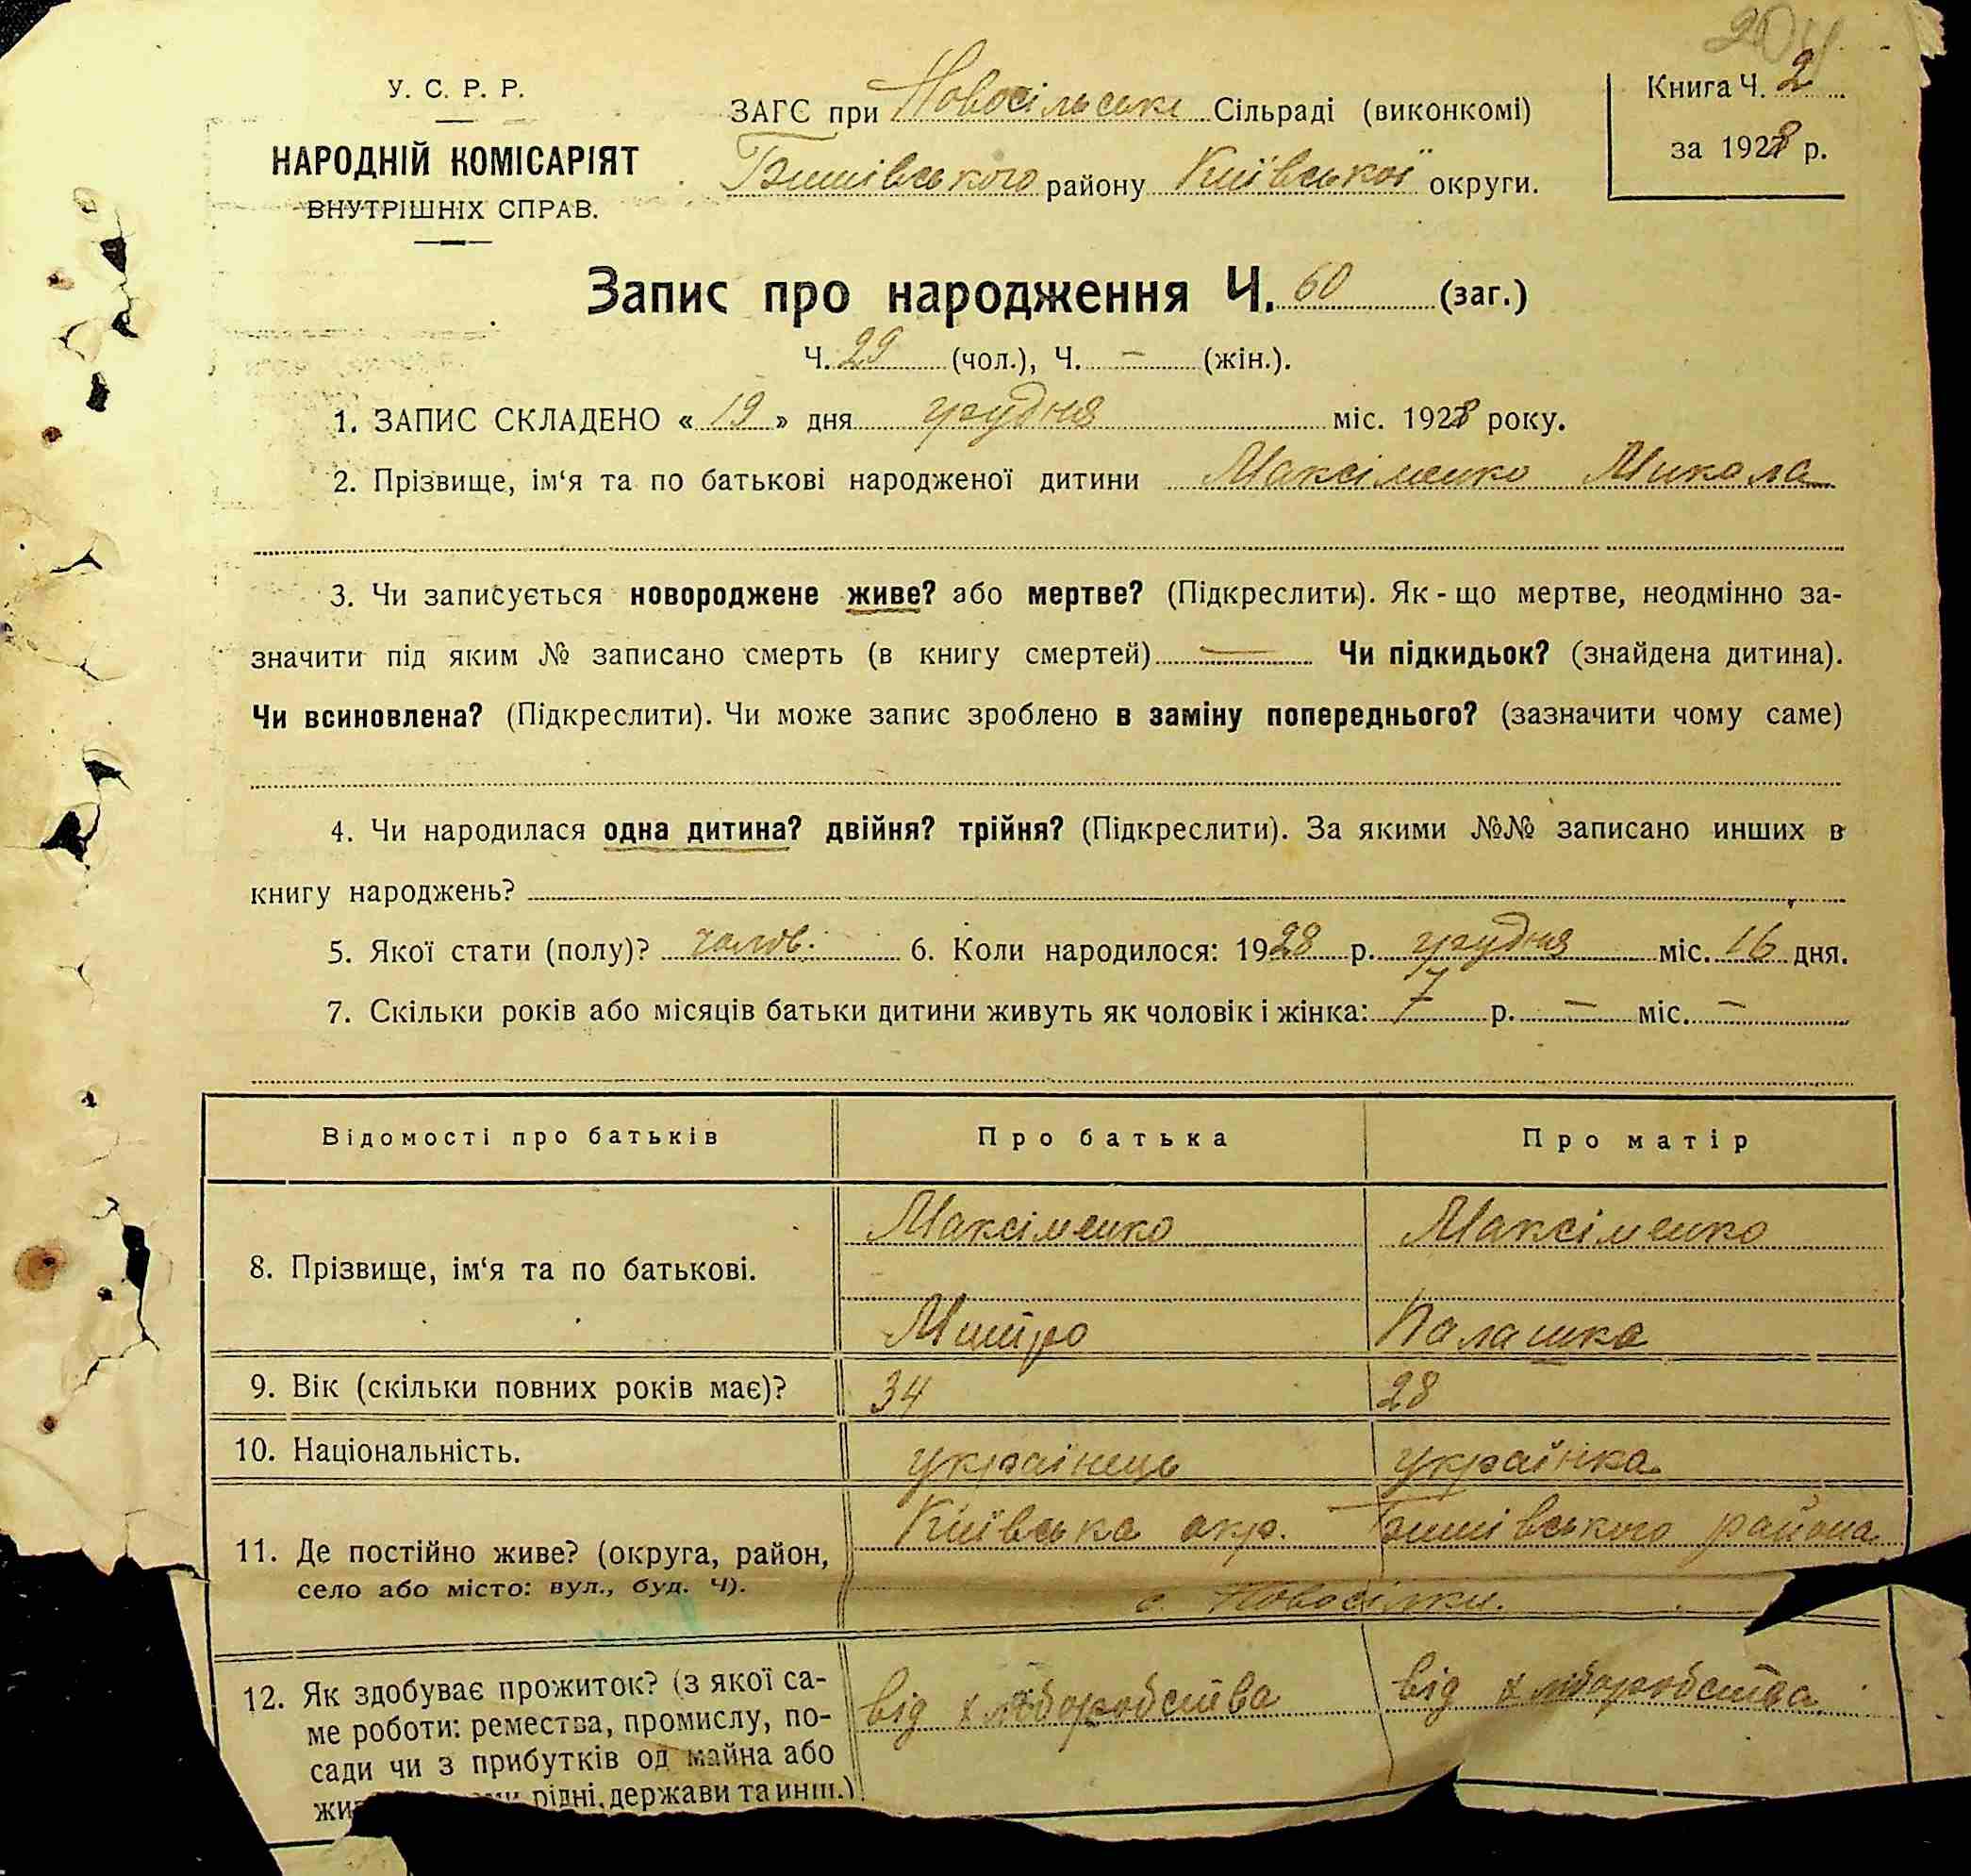 204
У. С. Р. Р.
НАРОДНІЙ КОМІСАРІЯТ
ВНУТРІШНІХ СПРАВ.
ЗАГС при Новосільські Сільраді (виконкомі)
району Київської округи.
Книга Ч. 2
за 1928 р.
Запис про народження Ч. 60 (заг.)
Ч. 29 (чол.), Ч. — (жін.).
1. ЗАПИС СКЛАДЕНО « 19 » дня грудня міс. 1928 року.
2. Прізвище, ім‘я та по батькові народженої дитини Максіменко Микола
3. Чи записується новороджене живе? або мертве? (Підкреслити). Як - що мертве, неодмінно за-
значити під яким № записано смерть (в книгу смертей) — Чи підкидьок? (знайдена дитина).
Чи всиновлена? (Підкреслити). Чи може запис зроблено в заміну попереднього? (зазначити чому саме)
4. Чи народилася одна дитина? двійня? трійня? (Підкреслити). За якими №№ записано инших в
книгу народжень?
5. Якої стати (полу)? чолов. 6. Коли народилося: 1928 р. грудня міс. 16 дня.
7. Скільки років або місяців батьки дитини живуть як чоловік і жінка: 7 р. — міс. —
Відомості про батьків Про батька Про матір
8. Прізвище, ім‘я та по батькові.
Максіменко Максіменко
Митро Палашка
9. Вік (скільки повних років має)? 34 28
10. Національність. українець українка
11. Де постійно живе? (округа, район,
село або місто: вул., буд. Ч).
Київська окр. района
с. Новосілки.
12. Як здобуває прожиток? (з якої са-
ме роботи: ремества, промислу, по-
сади чи з прибутків од майна або
рідні, держави та инш.)
від хліборобства від хліборобства